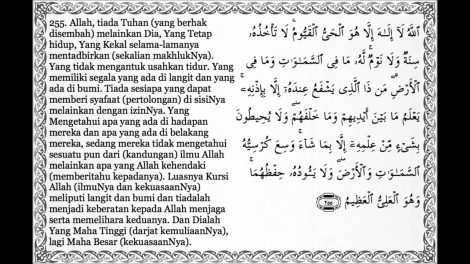 255. Allah, tiada Tuhan (yang berhak
disembah) melainkan Dia, Yang Tetap
hidup, Yang Kekal selama-lamanya
mentadbirkan (sekalian makhlukNya).
Yang tidak mengantuk usahkan tidur. Yang
memiliki segala yang ada di langit dan yang
ada di bumi. Tiada sesiapa yang dapat
memberi syafaat (pertolongan) di sisiNya
melainkan dengan izinNya. Yang
Mengetahui apa yang ada di hadapan
mereka dan apa yang ada di belakang
mereka, sedang mereka tidak mengetahui
sesuatu pun dari (kandungan) ilmu Allah
melainkan apa yang Allah kehendaki
(memberitahu kepadanya). Luasnya Kursi
Allah (ilmuNya dan kekuasaanNya)
meliputi langit dan bumi dan tiadalah
menjadi keberatan kepada Allah menjaga
serta memelihara keduanya. Dan Dialah
Yang Maha Tinggi (darjat kemuliaanNya),
lagi Maha Besar (kekuasaanNya).
ٱللَّهُ لَآ إِلَـٰهَ إِلَّا هُوَ ٱلۡحَىُّ ٱلۡقَيُّومُ‌ۚ لَا تَأۡخُذُهُ ۥ
سِنَةٌ۬ وَلَا نَوۡمٌ۬‌ۚ لَّهُ ۥ مَا فِى ٱلسَّمَـٰوَٲتِ وَمَا فِى
ٱلۡأَرۡضِ‌ۗ مَن ذَا ٱلَّذِى يَشۡفَعُ عِندَهُ ۥۤ إِلَّا بِإِذۡنِهِۦ‌ۚ
يَعۡلَمُ مَا بَيۡنَ أَيۡدِيهِمۡ وَمَا خَلۡفَهُمۡ‌ۖ وَلَا يُحِيطُونَ
بِشَىۡءٍ۬ مِّنۡ عِلۡمِهِۦۤ إِلَّا بِمَا شَآءَ‌ۚ وَسِعَ كُرۡسِيُّهُ
ٱلسَّمَـٰوَٲتِ وَٱلۡأَرۡضَ‌ۖ وَلَا يَـُٔودُهُ ۥ حِفۡظُهُمَا‌ۚ
وَهُوَ ٱلۡعَلِىُّ ٱلۡعَظِيمُ ٢٥٥